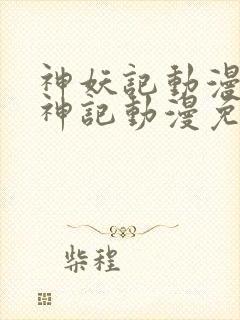 神妖記動漫
神記動漫免
柴程